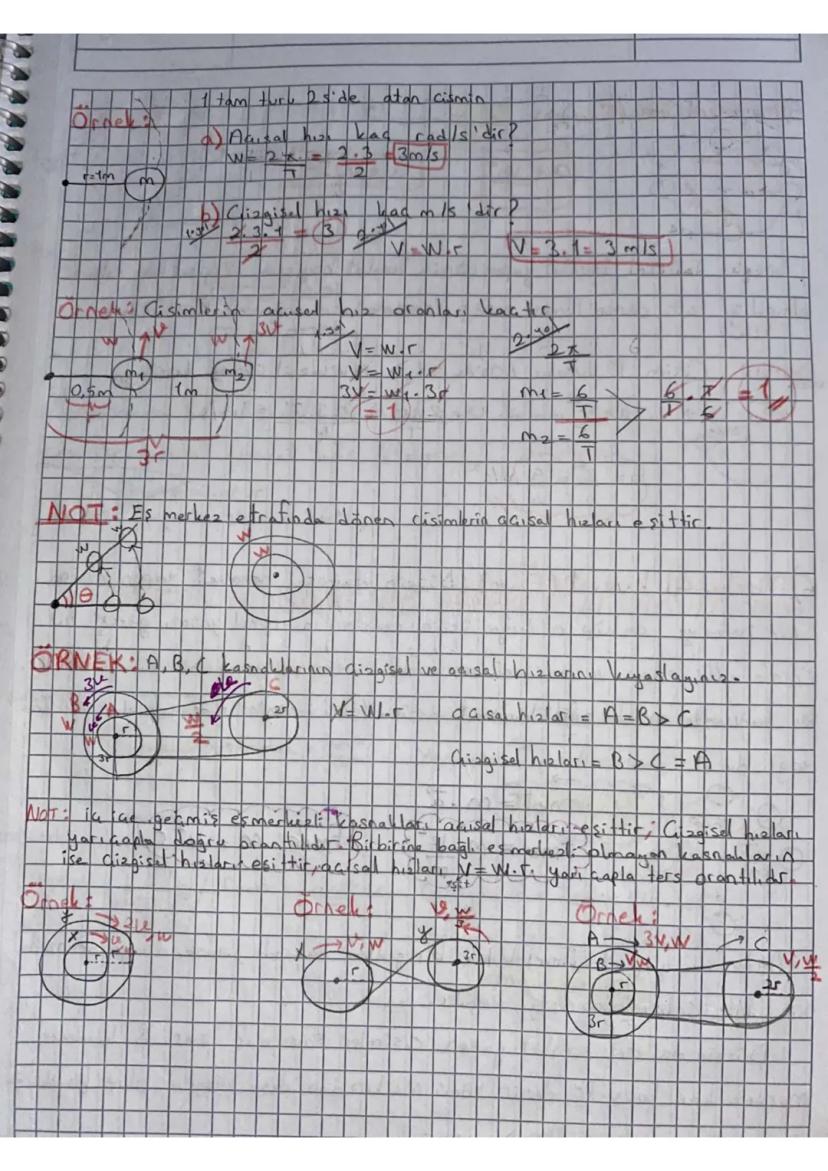 1 tam turu 2 s'de atan cismin
Örnek:
a) Açısal hızı kaç rad/s'dir?
r=1m m
W = 2π/T = 2.3/2 = 3m/s
b) Çizgisel hızı kaç m/s'dir?
1.yol 2.3.1/2 = 3 2.yol V=W.r V=3.1=3 m/s
Örnek: Cisimlerin açısal hız oranları kaçtır
W V W 3V
m1 m2
0,5m 1m
r
3r
1.yol
V=W.r
V=W1.r
3V=W1.3r
=1
2.yol
2π/T
m1=6/T
m2=6/T
6/T.T/6 =1
NOT: Eş merkez etrafında dönen cisimlerin açısal hızları eşittir.
W W θ W W
ÖRNEK: A, B, C kasnaklarının çizgisel ve açısal hızlarını kıyaslayınız.
3V B A W W r 3r W/2 C 2r
V=W.r açısal hızları = A=B>C
Çizgisel hızları = B>C=A
NOT: iç içe geçmiş eşmerkezli kasnakları açısal hızları eşittir, Çizgisel hızları
yarıçapla doğru orantılıdır. Birbirine bağlı eşmerkezli olmayan kasnakların
ise çizgisel hızları eşittir, açısal hızları V=W.r. yarıçapla ters orantılıdır.
Örnek: Örnek: Örnek:
y 2V, W
x V, W
r
x V, W
r
y 2r
A 3V, W
B V, W
r
3r
C V, W/2
2r